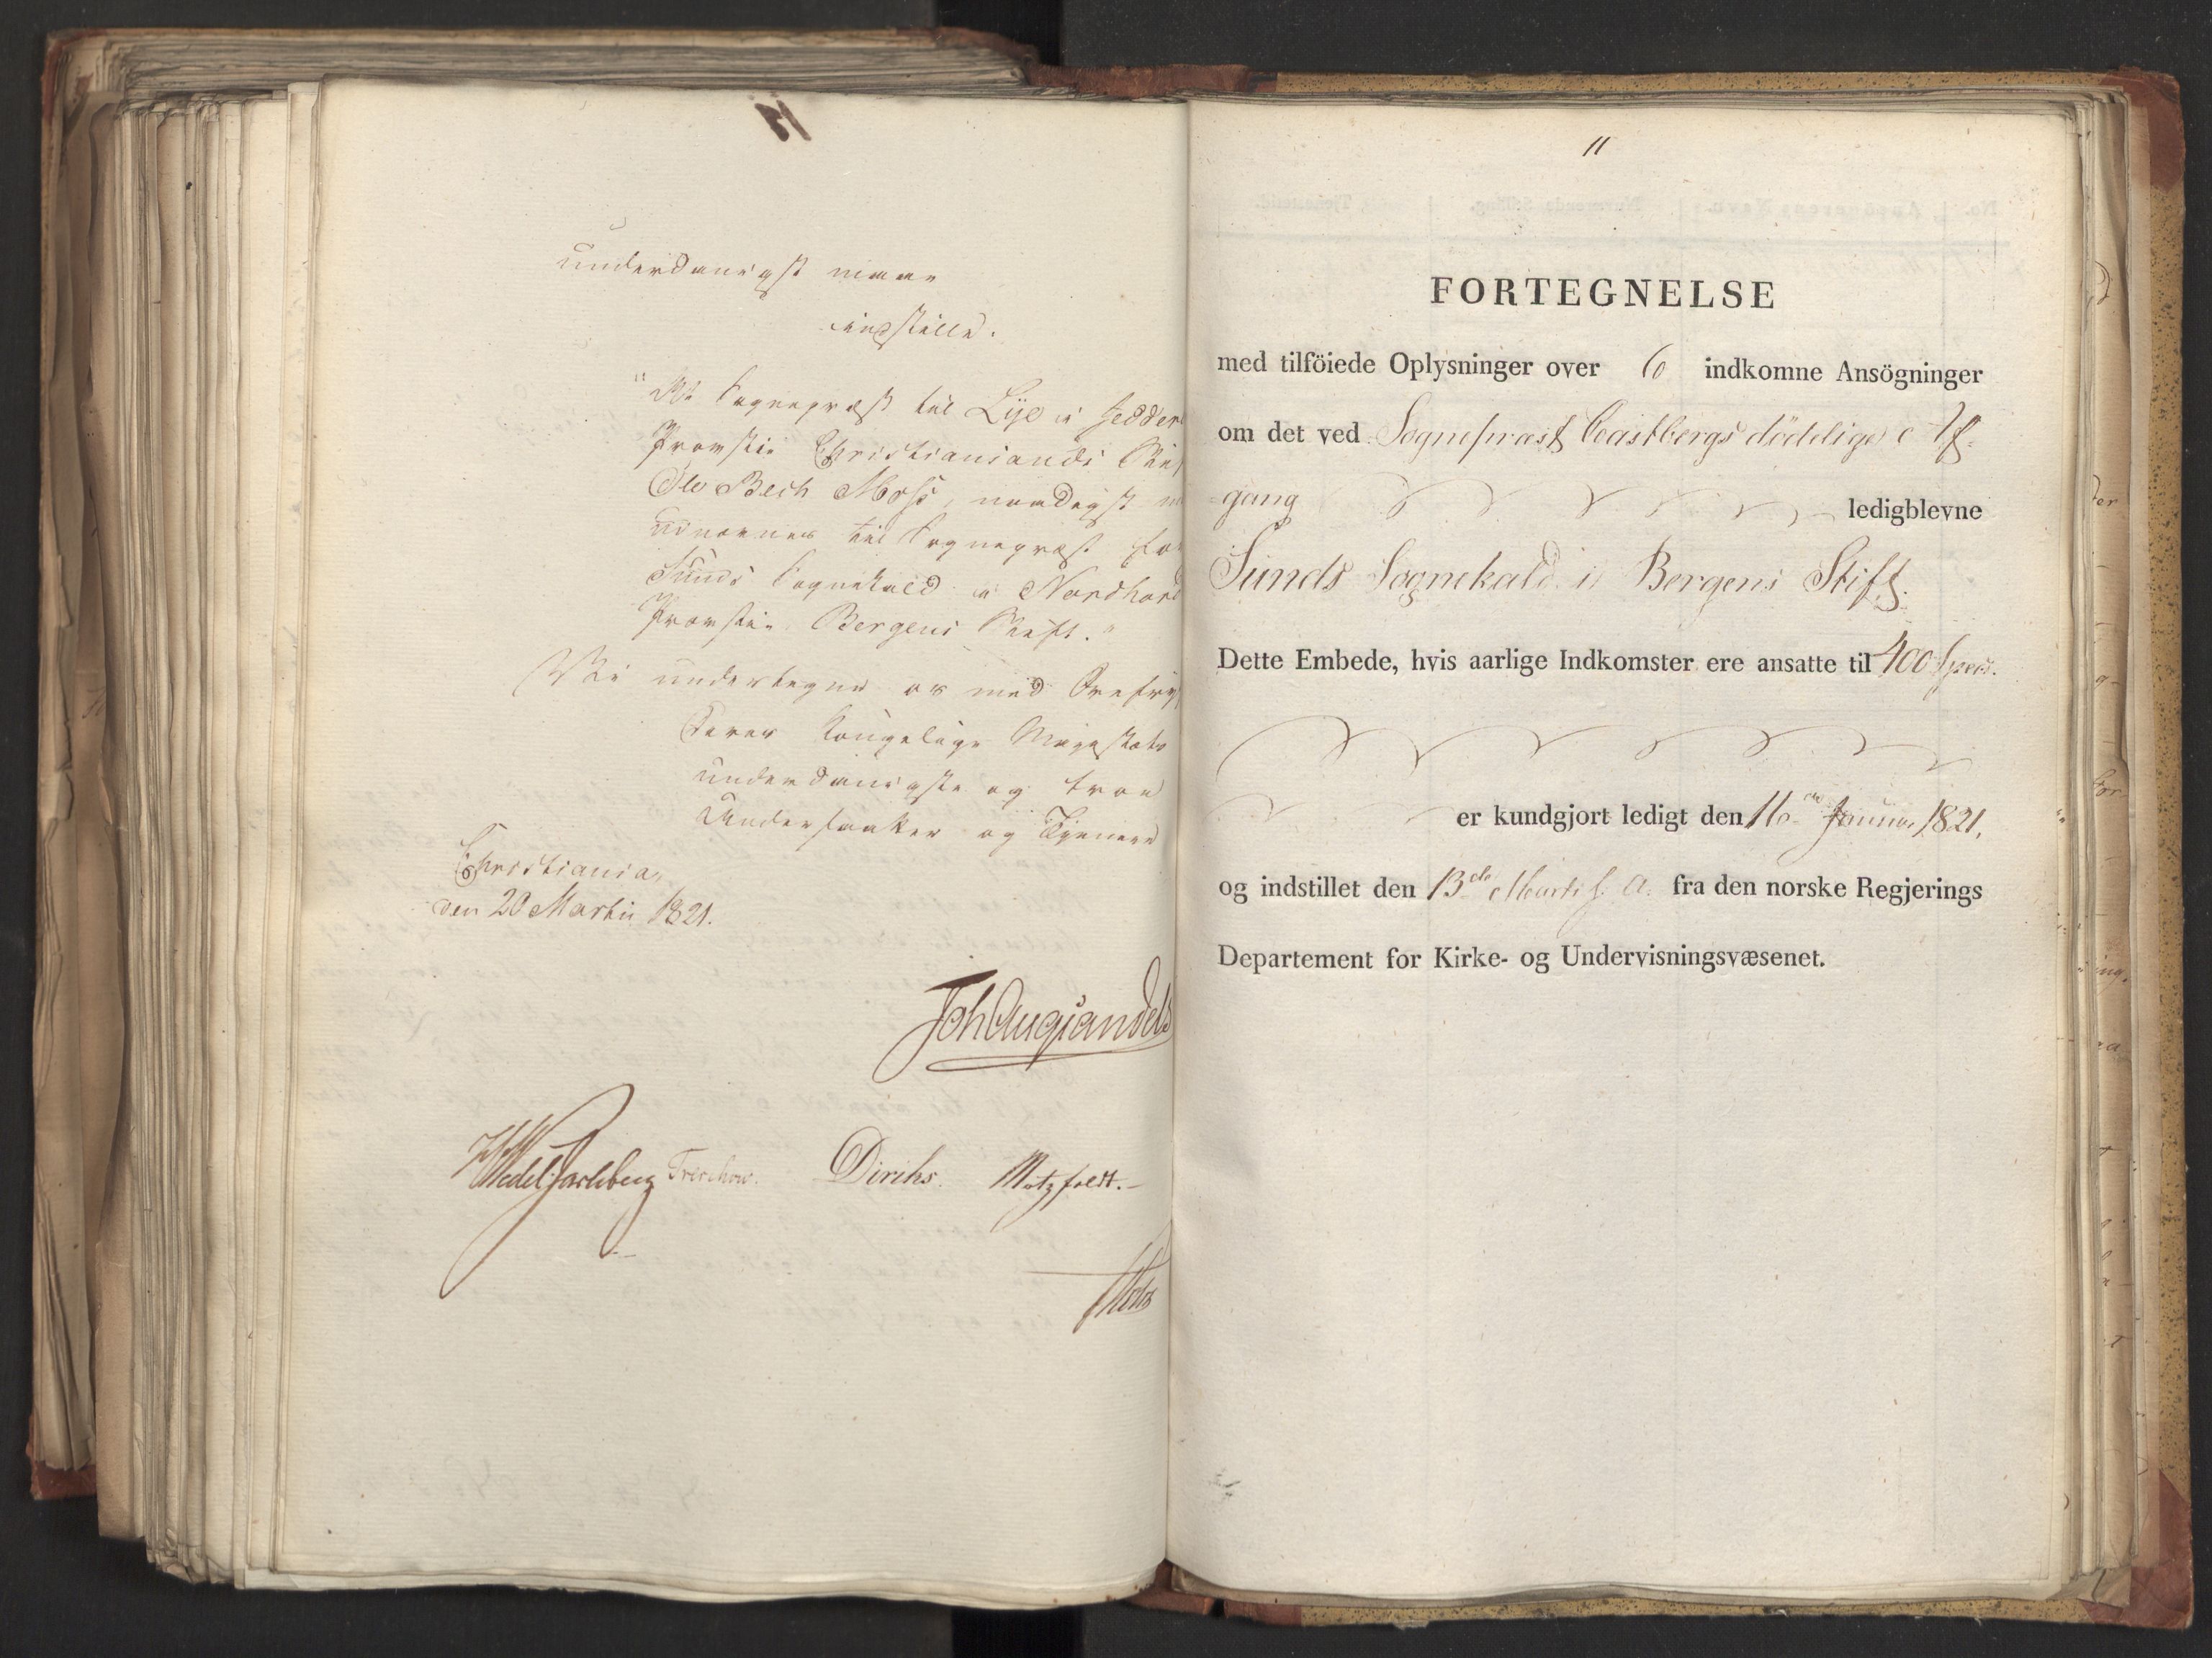 underdanigst maae
indstille:
"At Sognepræst til Lye i Jedder
Provstie Christiansands Stif
Ole Bech Moss, naadigst
udnævnes til Sognepræst for
Sunds Sognekald i Nordhord
Provstie Bergens Stift."
Vi undertegne os med Ærefry
Deres Kongelige Majestæts
underdanigste og troe
Undersaatter og Tjenere
Christiania,
den 20 Martii 1821.
Joh Aug Sandels
Wedel Jarlsberg Treschow. Diriks. Motzfeldt.
11
FORTEGNELSE
med tilföiede Oplysninger over 6 indkomne Ansögninger
om det ved Sognepræst Castbergs dödelige Af-
gang ledigblevne
Sunds Sognekald i Bergens Stift.
Dette Embede, hvis aarlige Indkomster ere ansatte til 400 Specd.
er kundgjort ledigt den 16de Januar 1821,
og indstillet den 13de Marti s. A. fra den norske Regjerings
Departement for Kirke- og Undervisningsvæsenet.